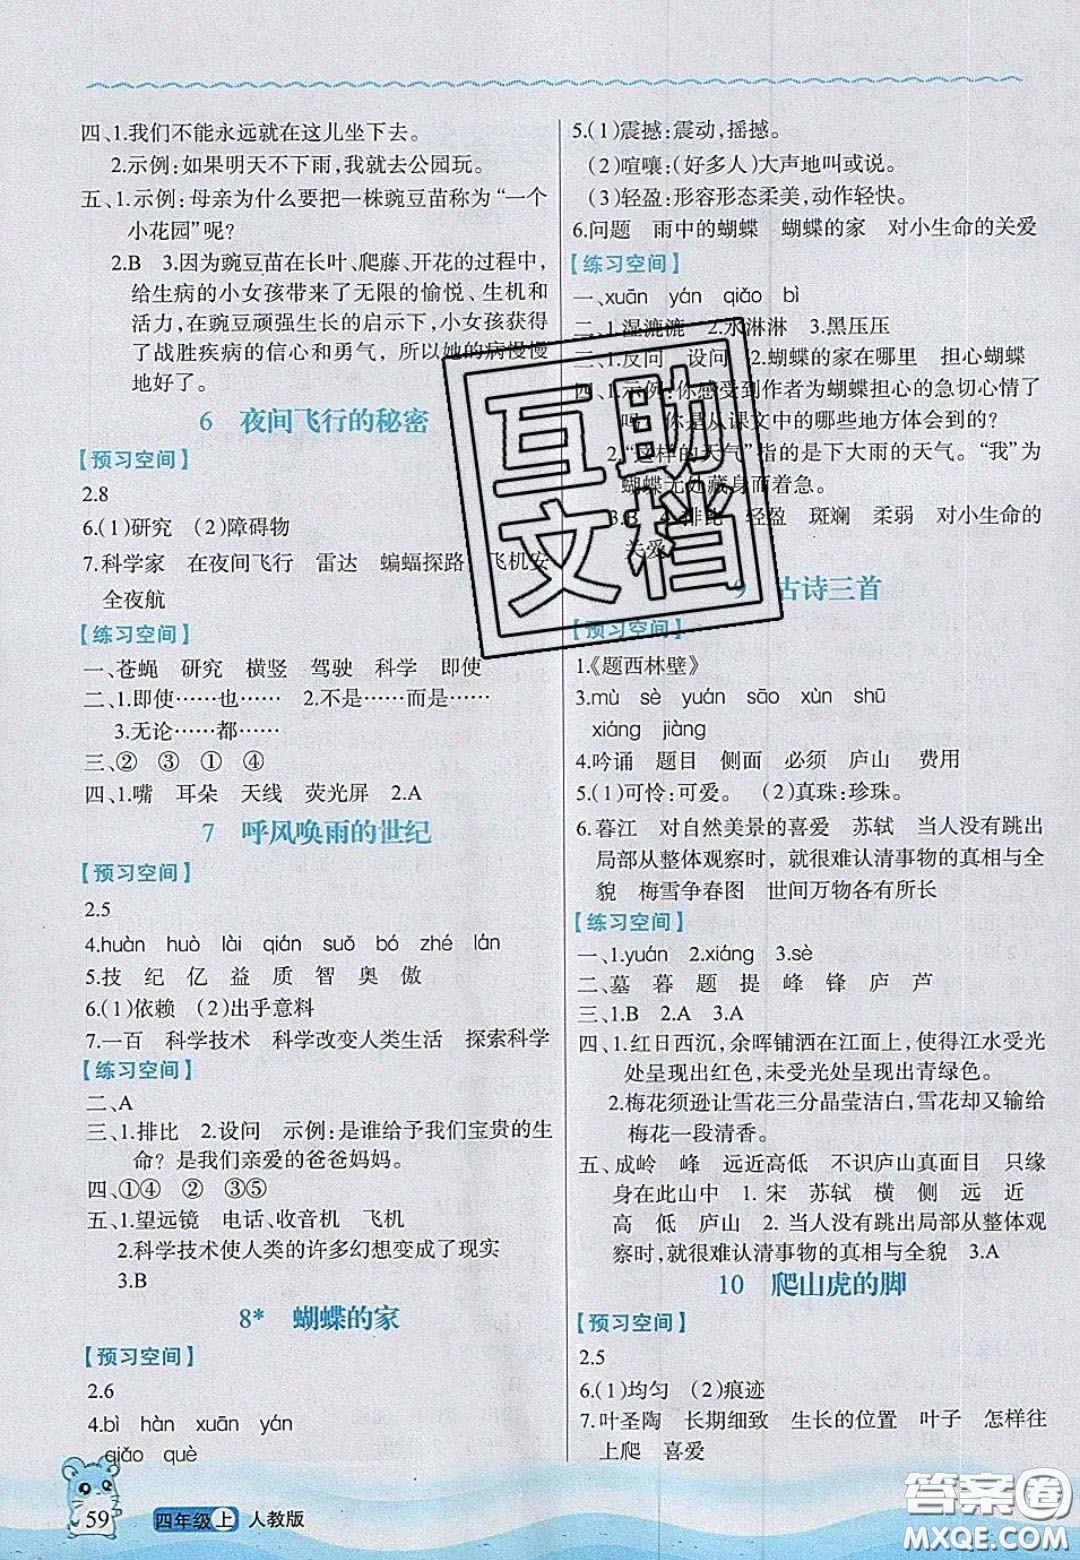 四、1.我们不能永远就在这儿坐下去。
2.示例:如果明天不下雨,我就去公园玩。
五、1.示例:母亲为什么要把一株豌豆苗称为“一个
小花园”呢?
2.B 3.因为豌豆苗在长叶、爬藤、开花的过程中,
给生病的小女孩带来了无限的愉悦、生机和
活力,在豌豆顽强生长的启示下,小女孩获得
了战胜疾病的信心和勇气,所以她的病慢慢
地好了。
6 夜间飞行的秘密
【预习空间】
2.8
6.(1)研究 (2)障碍物
7.科学家 在夜间飞行 雷达 蝙蝠探路 飞机安
全夜航
【练习空间】
一、苍蝇 研究 横竖 驾驶 科学 即使
二、1.即使……也…… 2.不是……而是……
3.无论……都……
三、② ③ ① ④
四、1.嘴 耳朵 天线 荧光屏 2.A
7 呼风唤雨的世纪
【预习空间】
2.5
4.huàn huò lài qián suǒ bó zhé lán
5.技 纪 亿 益 质 智 奥 傲
6.(1)依赖 (2)出乎意料
7.一百 科学技术 科学改变人类生活 探索科学
【练习空间】
二、A
三、1.排比 2.设问 示例:是谁给予我们宝贵的生
命? 是我们亲爱的爸爸妈妈。
四、①④ ② ③⑤
五、1.望远镜 电话、收音机 飞机
2.科学技术使人类的许多幻想变成了现实
3.B
8* 蝴蝶的家
【预习空间】
2.6
4.bì hàn xuān yán
qiǎo què
5.(1)震撼:震动,摇撼。
(2)喧嚷:(好多人)大声地叫或说。
(3)轻盈:形容形态柔美,动作轻快。
6.问题 雨中的蝴蝶 蝴蝶的家 对小生命的关爱
【练习空间】
一、xuān yán qiǎo bì
二、1.湿漉漉 2.水淋淋 3.黑压压
三、1.反问 设问 2.蝴蝶的家在哪里 担心蝴蝶
四、1.示例:你感受到作者为蝴蝶担心的急切心情了
吗? 你是从课文中的哪些地方体会到的?
2.“这样的天气”指的是下大雨的天气。“我”为
蝴蝶无处藏身而着急。
3.B 4.排比 轻盈 斑斓 柔弱 对小生命的
关爱
9 古诗三首
【预习空间】
1.《题西林壁》
3.mù sè yuán sāo xùn shū
xiáng jiàng
4.吟诵 题目 侧面 必须 庐山 费用
5.(1)可怜:可爱。 (2)真珠:珍珠。
6.暮江 对自然美景的喜爱 苏轼 当人没有跳出
局部从整体观察时,就很难认清事物的真相与全
貌 梅雪争春图 世间万物各有所长
【练习空间】
一、1.yuán 2.xiáng 3.sè
二、墓 暮 题 提 峰 锋 庐 芦
三、1.B 2.A 3.A
四、1.红日西沉,余晖铺洒在江面上,使得江水受光
处呈现出红色,未受光处呈现出青绿色。
2.梅花须逊让雪花三分晶莹洁白,雪花却又输给
梅花一段清香。
五、成岭 峰 远近高低 不识庐山真面目 只缘
身在此山中 1. 宋 苏轼 横 侧 远 近
高 低 庐山 2. 当人没有跳出局部从整体观
察时,就很难认清事物的真相与全貌 3.A
10 爬山虎的脚
【预习空间】
2.5
6.(1)均匀 (2)痕迹
7.叶圣陶 长期细致 生长的位置 叶子 怎样往
上爬 喜爱
互助
文档
59 四年级上 人教版
答案圈
MXQE.COM